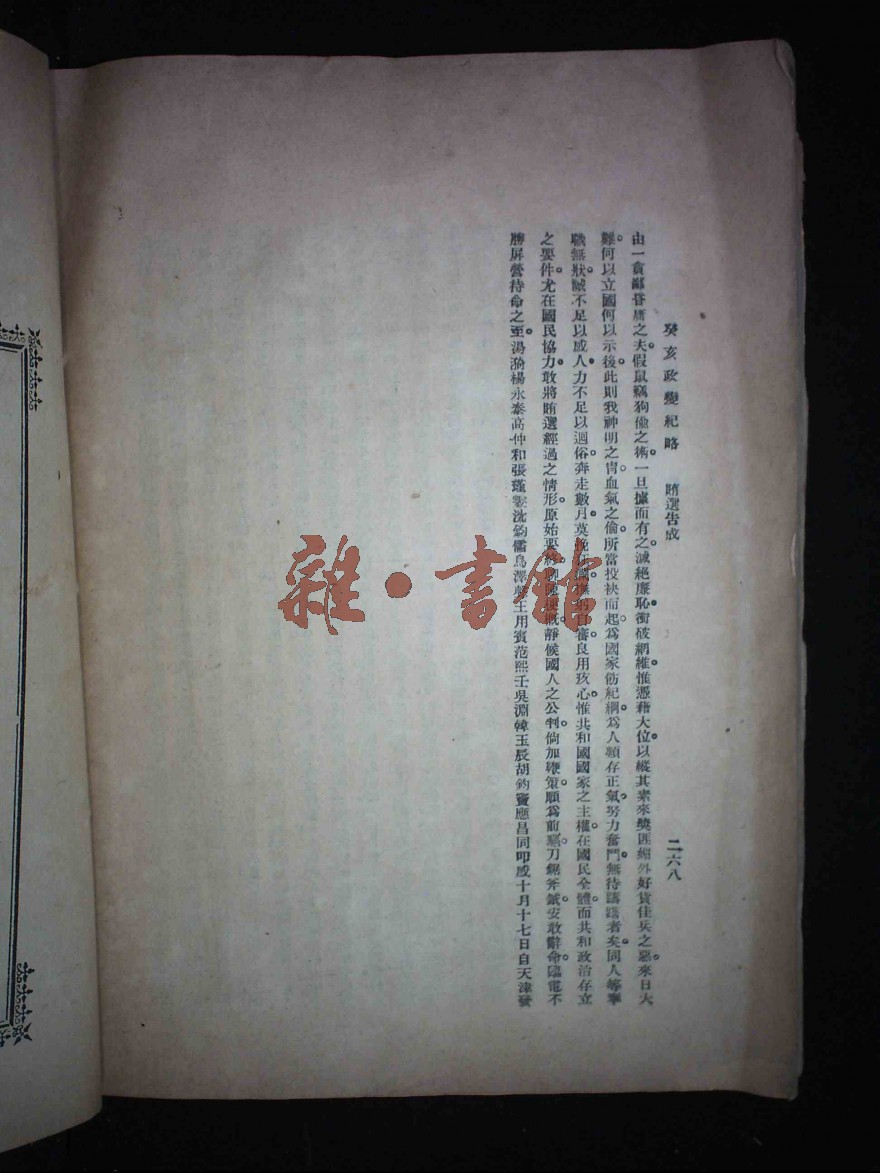 癸亥政變紀略 賄選告成 二六八
由一貪鄙昏庸之夫。假鼠竊狗偷之術。一旦據而有之。滅絕廉恥。衝破網維。惟憑藉大位。以縱其素來獎匪媚外好貨佳兵之惡。來日大
難。何以立國。何以示後。此則我神明之冑。血氣之倫。所當投袂而起。為國家飭紀綱。為人類存正氣。努力奮鬥。無待躊躇者矣。同人等奉
職無狀。誠不足以感人。力不足以迴俗。奔走數月。莫 自審。良用疚心。惟共和國國家之主權。在國民全體。而共和政治存立
之要件。尤在國民協力。敢將賄選經過之情形。原始要 靜候國人之公判。倘加鞭策。願為前驅。刀鋸斧鉞。安敢辭命。臨電不
勝屏營待命之至。湯漪楊永泰高仲和張瑾雯沈鈞儒烏澤聲王用賓范熙壬吳淵韓玉辰胡鈞竇應昌同叩咸十月十七日自天津發
雜·書館